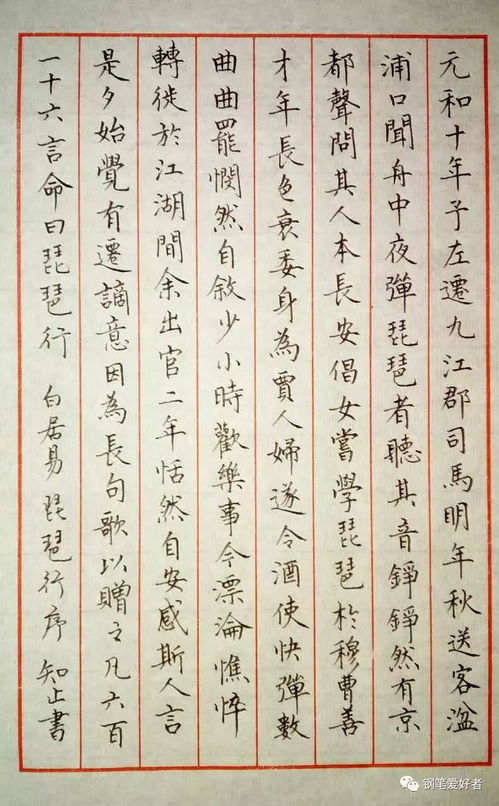 元和十年予左遷九江郡司馬明年秋送客湓
浦口聞舟中夜彈琵琶者聽其音錚錚然有京
都聲問其人本長安倡女嘗學琵琶於穆曹善
才年長色衰委身為賈人婦遂令酒使快彈數
曲曲罷憫然自敘少小時歡樂事今漂淪憔悴
轉徙於江湖間余出官二年恬然自安感斯人言
是夕始覺有遷謫意因為長句歌以贈之凡六百
一十六言命曰琵琶行 白居易琵琶行序 知止書
钢笔爱好者